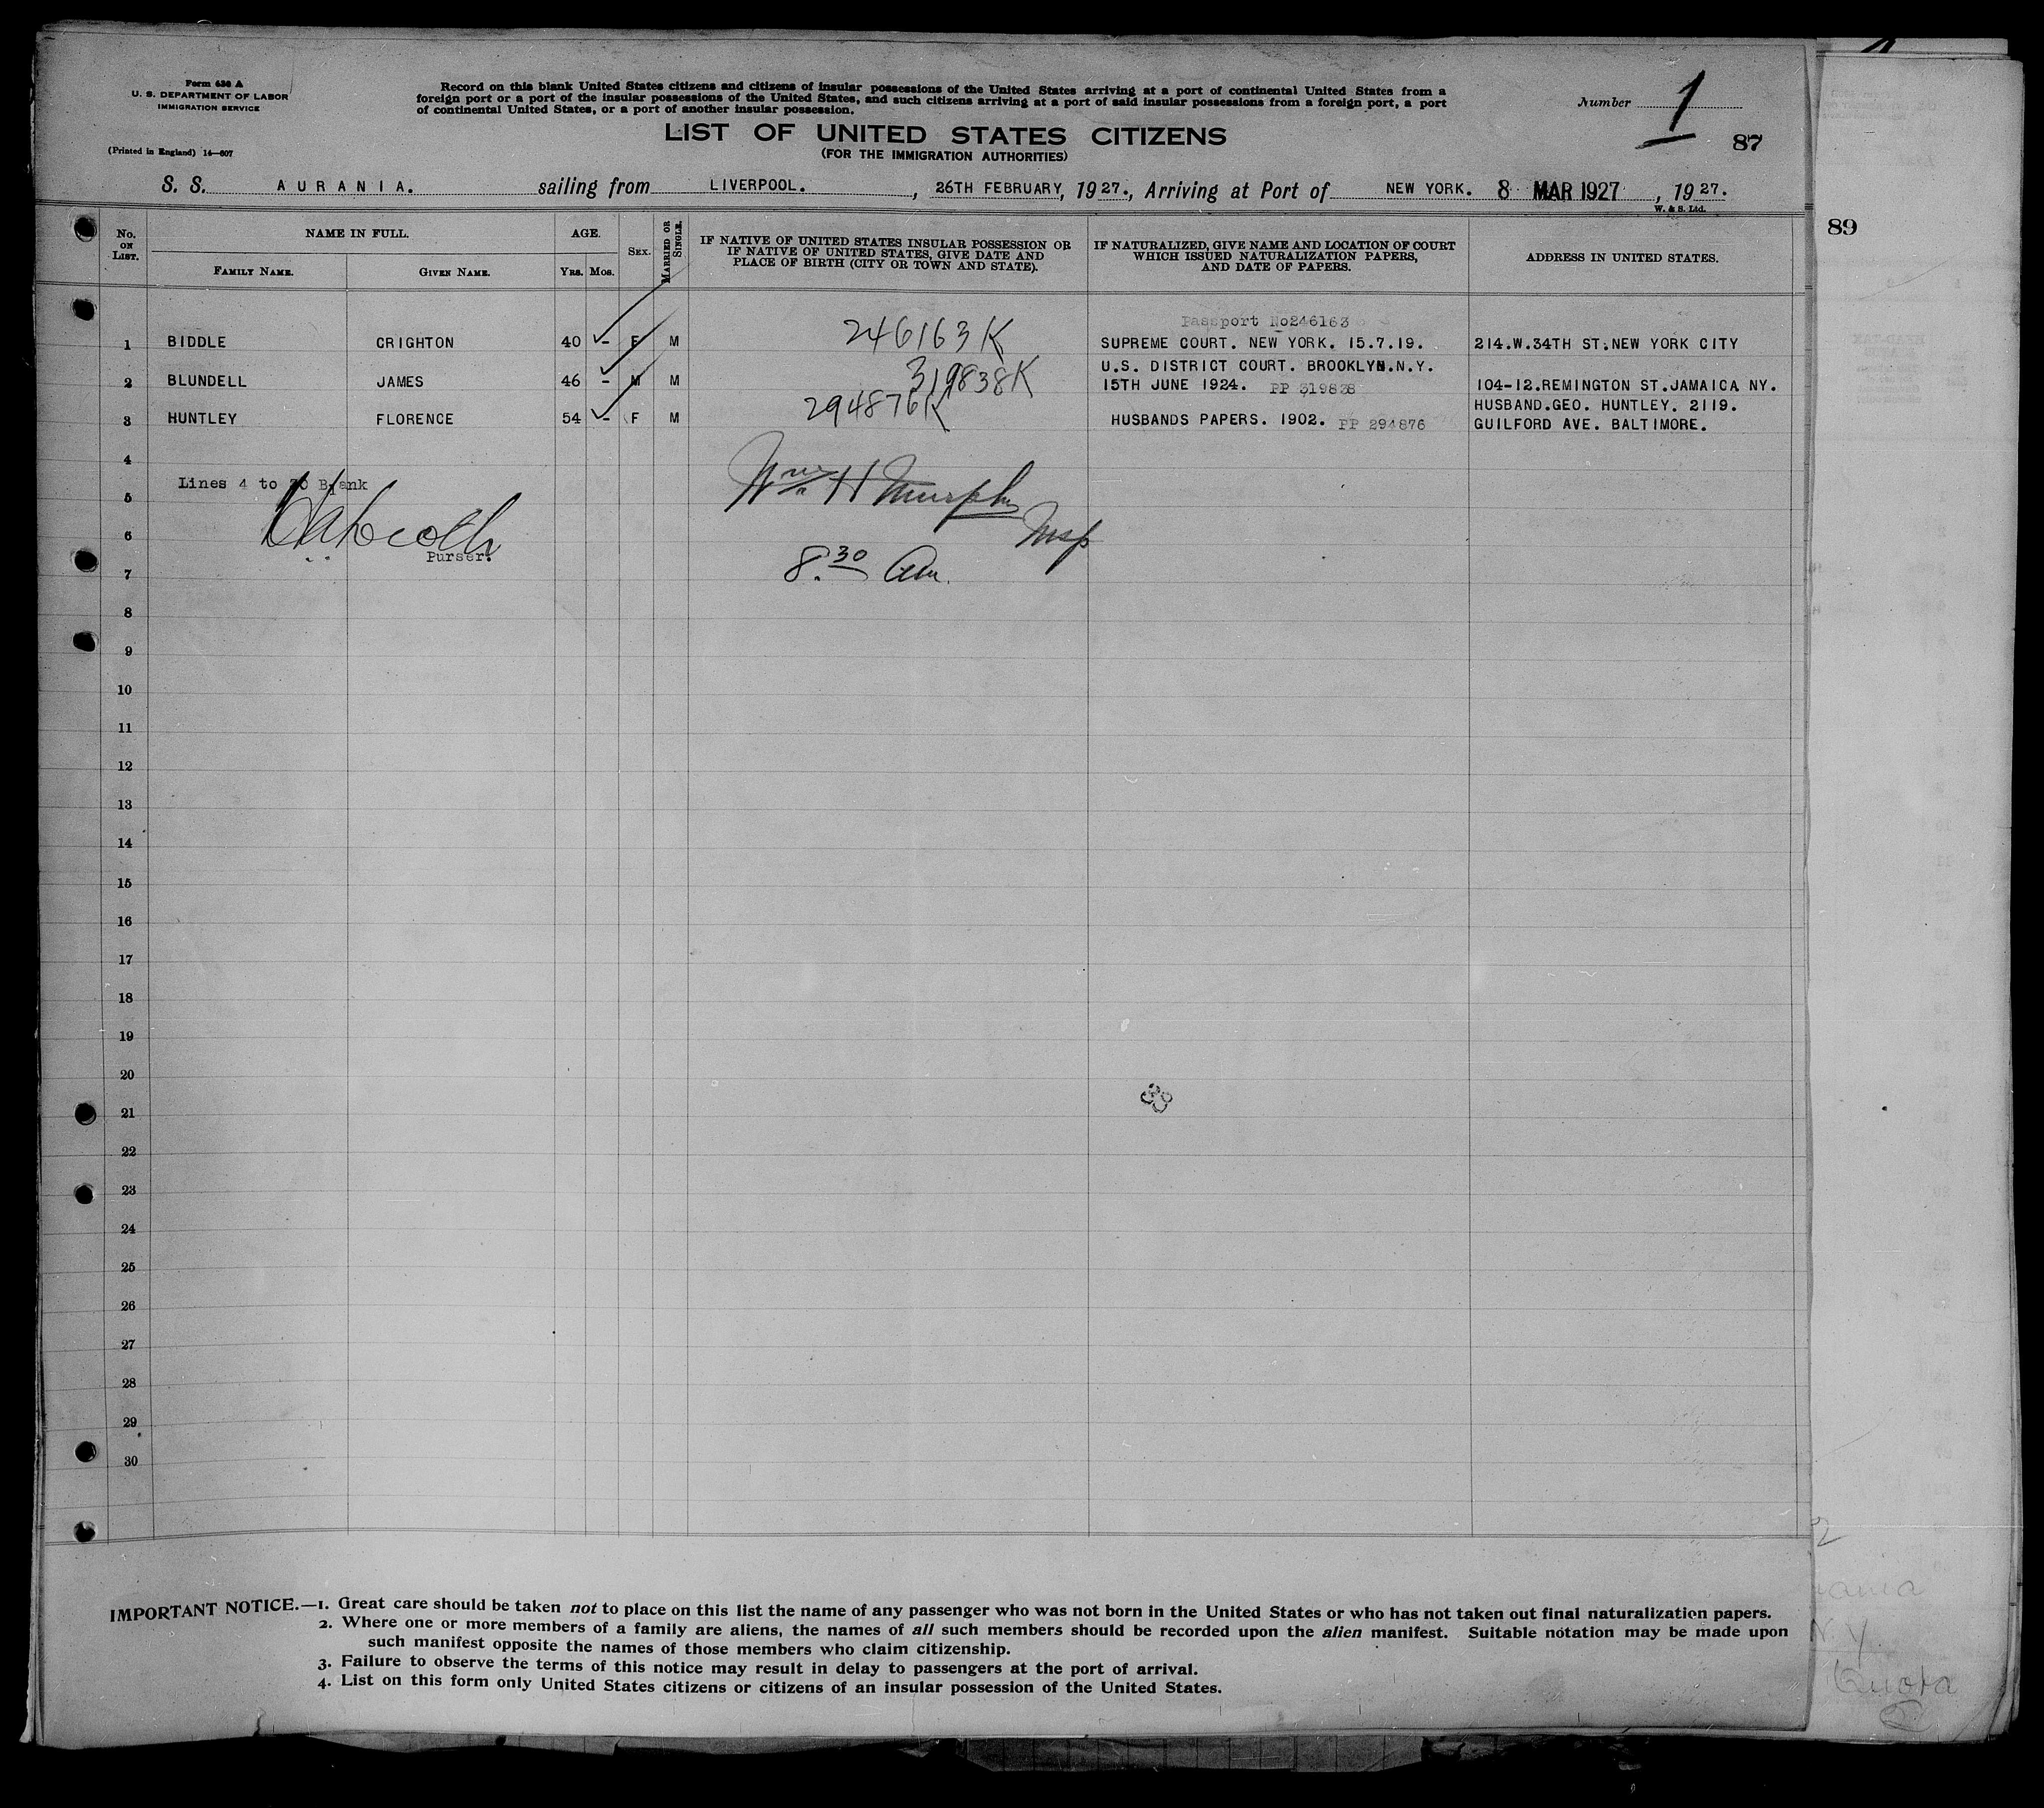 Form 630 A
U. S. DEPARTMENT OF LABOR
IMMIGRATION SERVICE
(Printed in England) 14—607
Record on this blank United States citizens and citizens of insular possessions of the United States arriving at a port of continental United States from a
foreign port or a port of the insular possessions of the United States, and such citizens arriving at a port of said insular possessions from a foreign port, a port
of continental United States, or a port of another insular possession.
LIST OF UNITED STATES CITIZENS
(FOR THE IMMIGRATION AUTHORITIES)
Number 1
87
S. S. AURANIA. sailing from LIVERPOOL. , 26TH FEBRUARY, 1927., Arriving at Port of NEW YORK. 8 MAR 1927 , 1927.
W. & S. Ltd.
89
No. ON LIST.
NAME IN FULL.
FAMILY NAME.
GIVEN NAME.
AGE.
YRS. MOS.
SEX.
MARRIED OR SINGLE.
IF NATIVE OF UNITED STATES INSULAR POSSESSION OR
IF NATIVE OF UNITED STATES, GIVE DATE AND
PLACE OF BIRTH (CITY OR TOWN AND STATE).
IF NATURALIZED, GIVE NAME AND LOCATION OF COURT
WHICH ISSUED NATURALIZATION PAPERS,
AND DATE OF PAPERS.
ADDRESS IN UNITED STATES.
Passport No246163
1 BIDDLE CRIGHTON 40 - F M 246163K SUPREME COURT. NEW YORK. 15.7.19. 214.W.34TH ST.NEW YORK CITY
U.S. DISTRICT COURT. BROOKLYN.N.Y.
2 BLUNDELL JAMES 46 - M M 319838K 15TH JUNE 1924. PP 319838 104-12.REMINGTON ST.JAMAICA NY.
HUSBAND.GEO. HUNTLEY. 2119.
3 HUNTLEY FLORENCE 54 - F M 294876K HUSBANDS PAPERS. 1902. PP 294876 GUILFORD AVE. BALTIMORE.
4
Lines 4 to 30 Blank
Wm H Murphy
5
6
Insp
Purser.
8.30 Am.
7
8
9
10
11
12
13
14
15
16
17
18
19
20
21
22
23
24
25
26
27
28
29
30
IMPORTANT NOTICE.—1. Great care should be taken not to place on this list the name of any passenger who was not born in the United States or who has not taken out final naturalization papers.
2. Where one or more members of a family are aliens, the names of all such members should be recorded upon the alien manifest. Suitable notation may be made upon
such manifest opposite the names of those members who claim citizenship.
3. Failure to observe the terms of this notice may result in delay to passengers at the port of arrival.
4. List on this form only United States citizens or citizens of an insular possession of the United States.
N.Y.
Quota